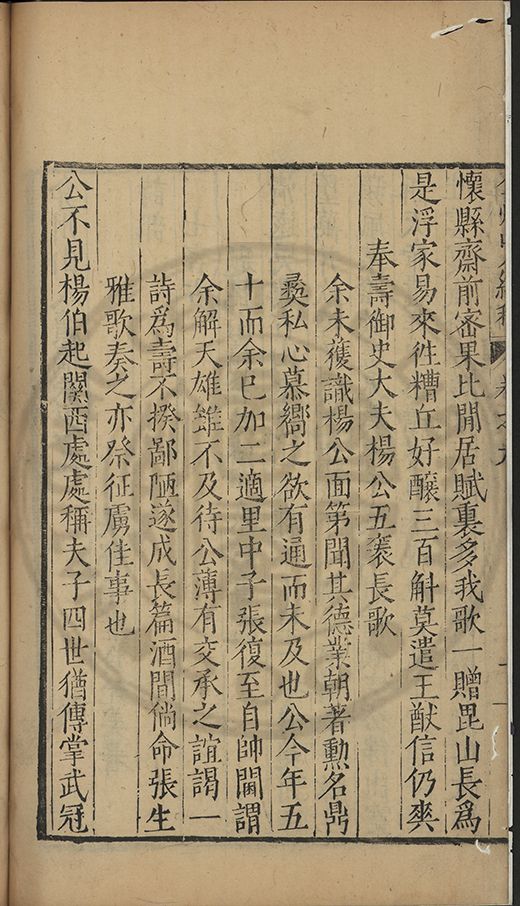 懷縣齋前審果比閒居賦裏多我歌一贈毘山長爲
是浮家易來徃糟丘好釀三百斛莫遣王猷信仍爽
奉壽御史大夫楊公五袠長歌
余未獲識楊公面第聞其德業朝著勳名鼎
彜私心慕嚮之欲有通而未及也公今年五
十而余巳加二適里中子張復至自帥閫謂
余解天雄雖不及待公薄有交承之誼謁一
詩爲壽不揆鄙陋遂成長篇酒間倘命張生
雅歌奏之亦祭征虜佳事也
公不見楊伯起關西處處稱夫子四世猶傳掌武冠